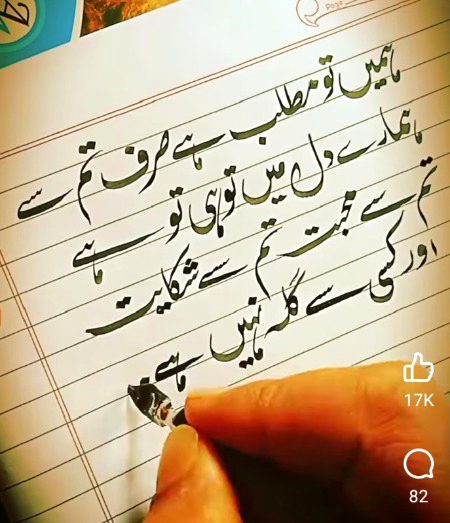 Page
ہمیں تو مطلب ہے صرف تم سے
ہمارے دل میں تو ہی تو ہے
تم سے محبت تم سے شکایت
اور کسی سے گلہ نہیں ہے
17K
82